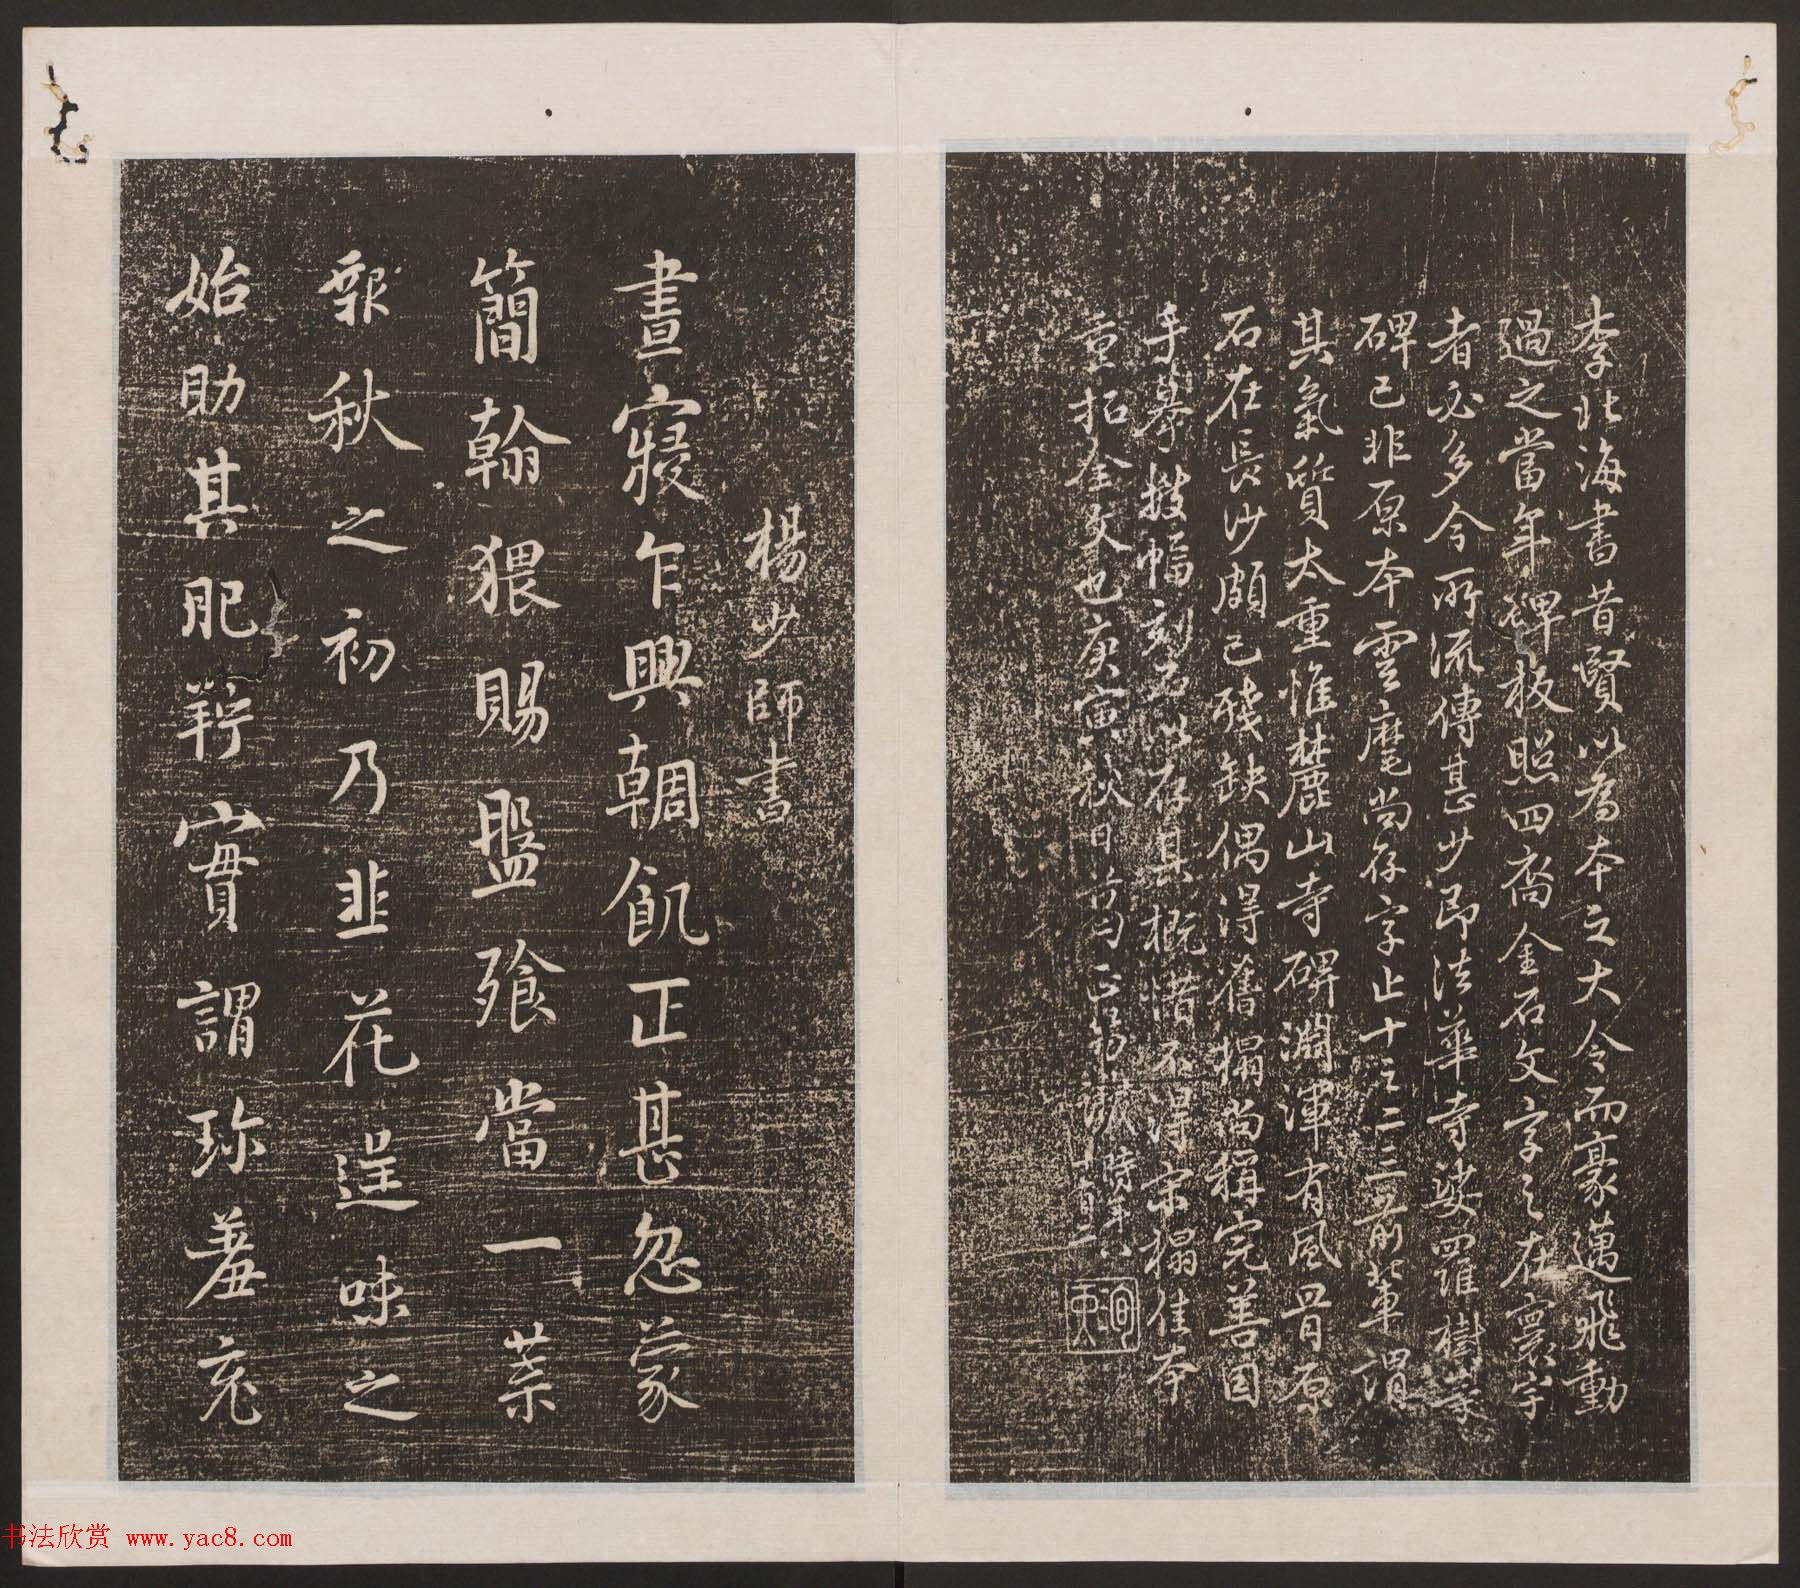 李北海書昔賢以為本之大令而豪邁飛動
過之當年碑板照四裔金石文字之在寰宇
者必多今所流傳甚少即法華寺娑羅樹等
碑已非原本雲麾尚存字止十之二三前輩謂
其氣質太重惟麓山寺碑淵渾有風骨原
石在長沙頗已殘缺偶得舊搨尚稱完善因
手摹數幅刻石以存其概惜不得宋搨佳本
重拓全文也庚寅秋日
時年六十有二
楊少師書
晝寢乍興輖飢正甚忽蒙
簡翰猥賜盤飱當一葉
報秋之初乃韭花逞味之
始助其肥羜實謂珍羞充
书法欣赏 www.yac8.com